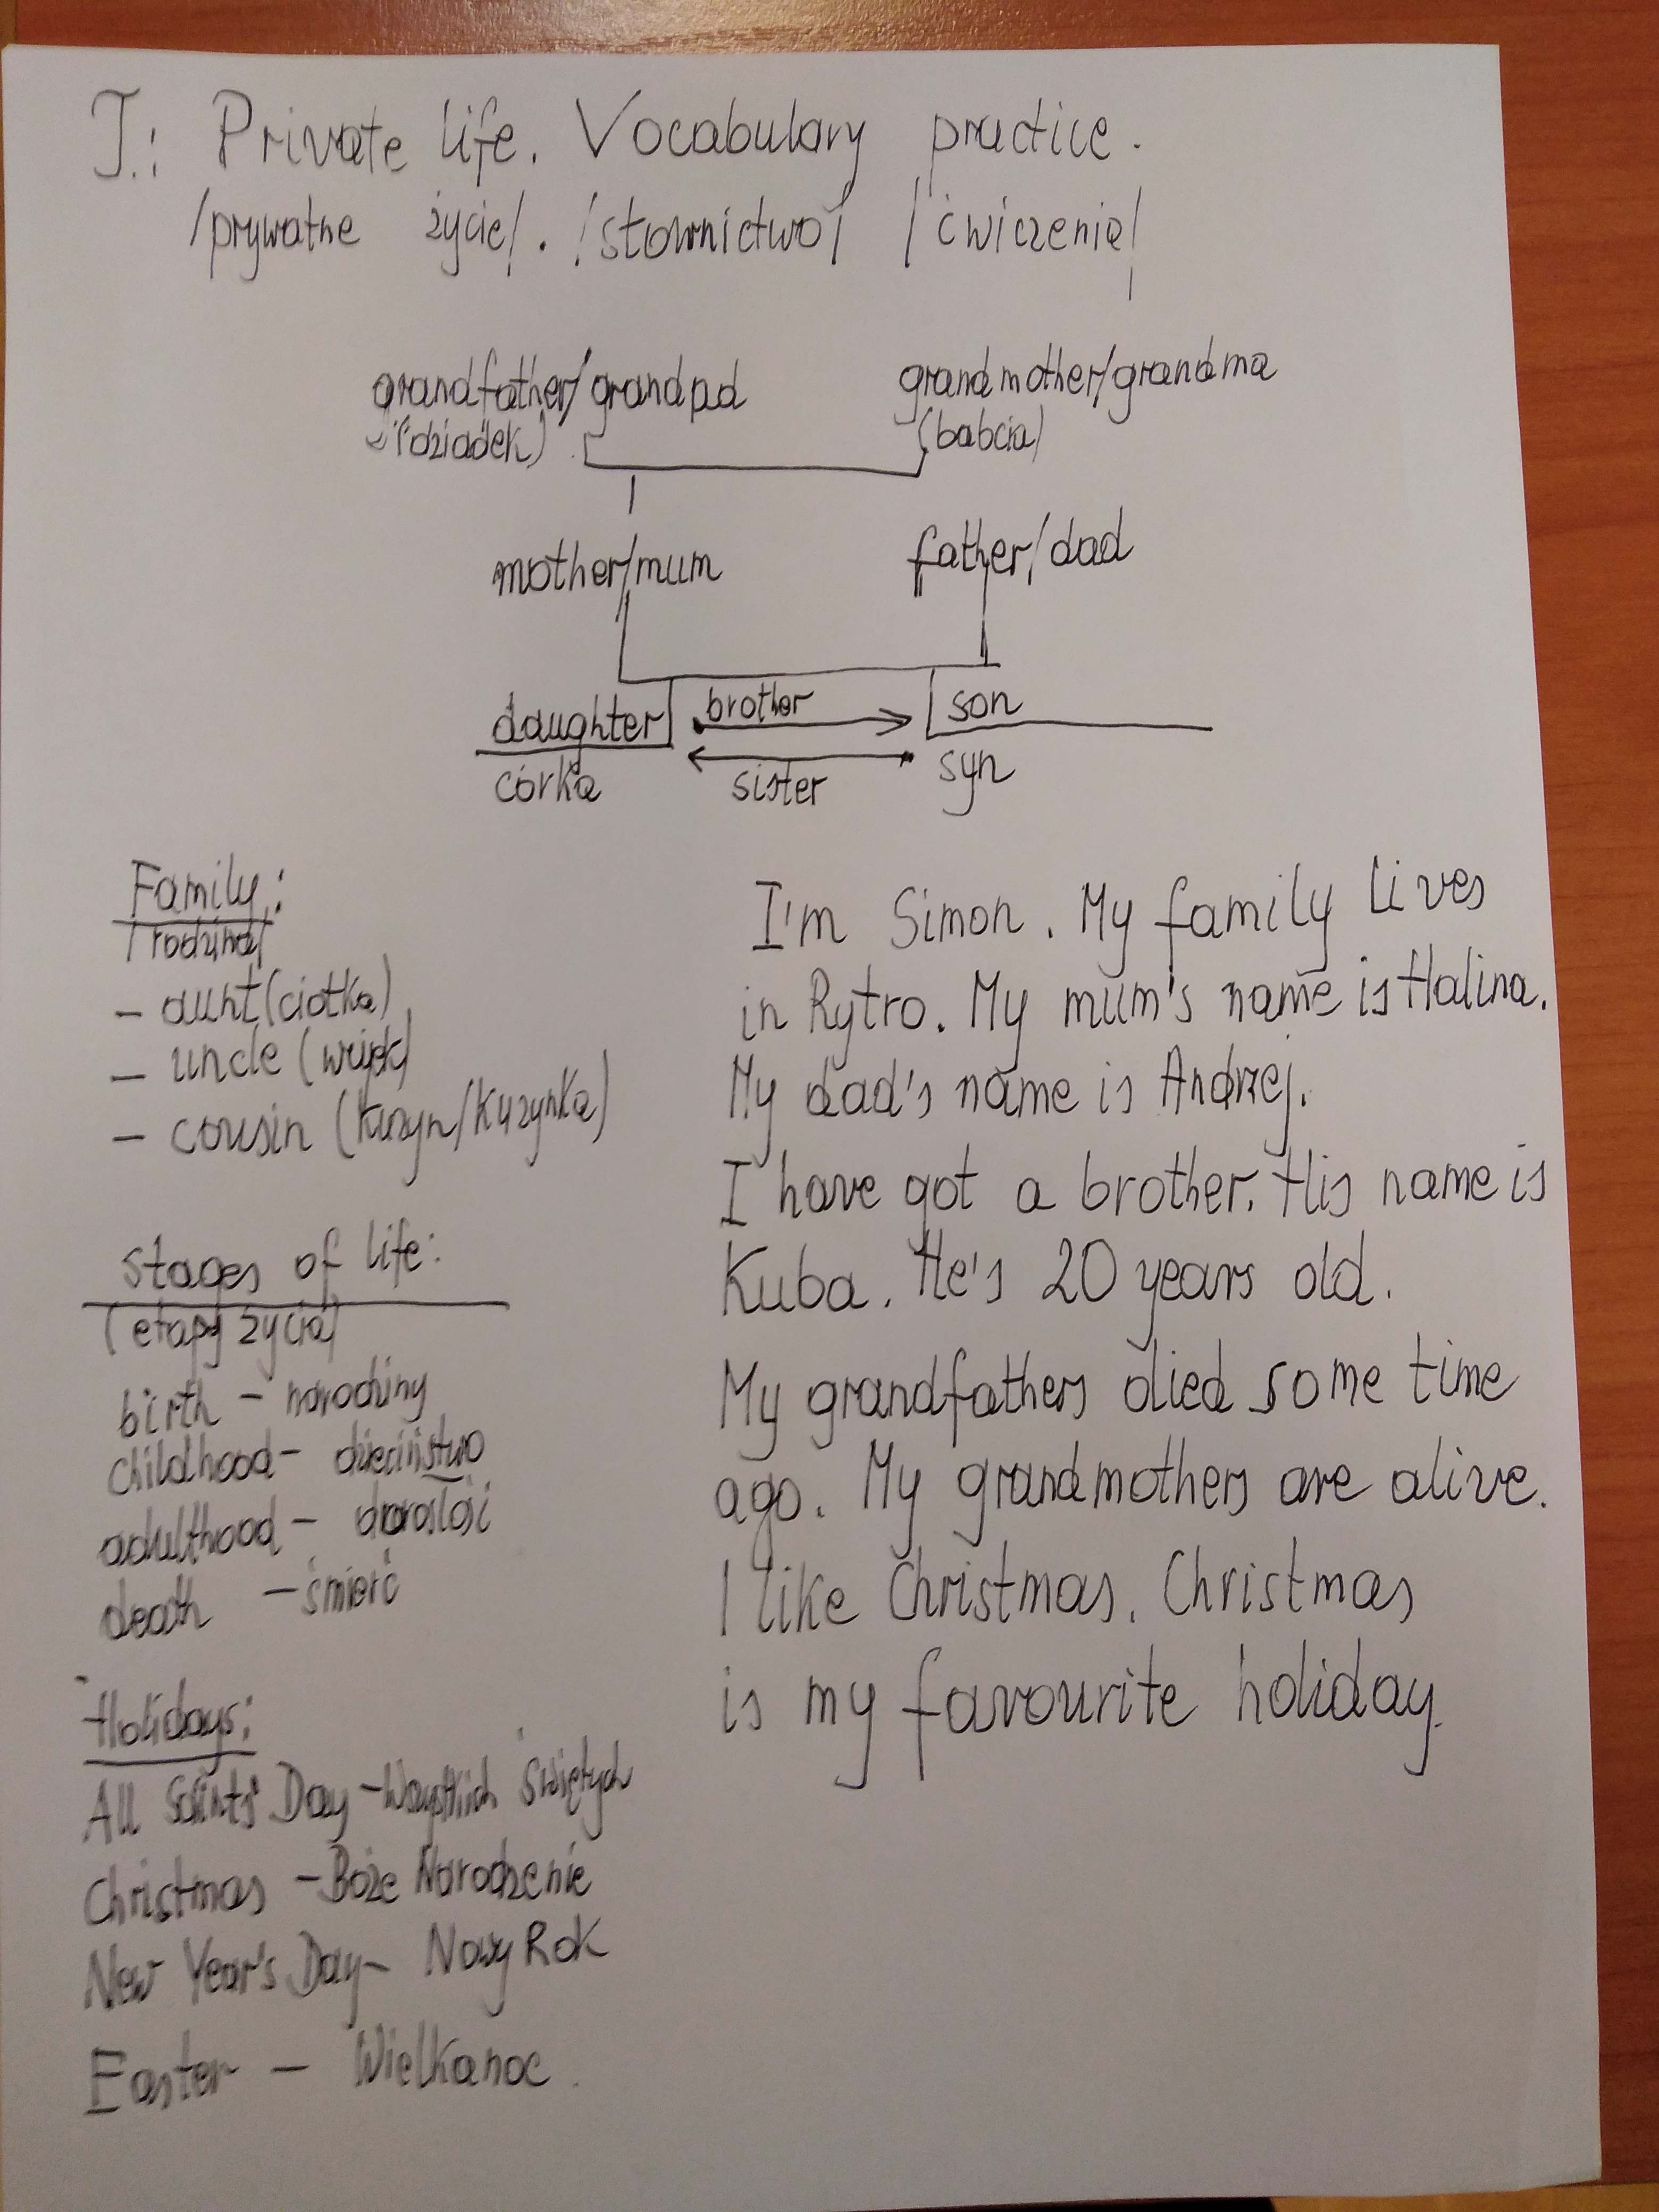 T.: Private life. Vocabulary practice.
/prywatne życie/. /słownictwo/ /ćwiczenia/
grandfather/grandpad grandmother/grandma
(dziadek) (babcia)
mother/mum father/dad
daughter brother son
córka sister syn
Family:
/rodzina/
- aunt (ciotka)
- uncle (wujek)
- cousin (kuzyn/kuzynka)
Stages of life:
(etapy życia)
birth - narodziny
childhood - dzieciństwo
adulthood - dorosłość
death - śmierć
Holidays:
All Saints' Day - Wszystkich Świętych
Christmas - Boże Narodzenie
New Year's Day - Nowy Rok
Easter - Wielkanoc.
I'm Simon. My family lives
in Rytro. My mum's name is Halina.
My dad's name is Andrzej.
I have got a brother. His name is
Kuba. He's 20 years old.
My grandfathers died some time
ago. My grandmothers are alive.
I like Christmas. Christmas
is my favourite holiday.